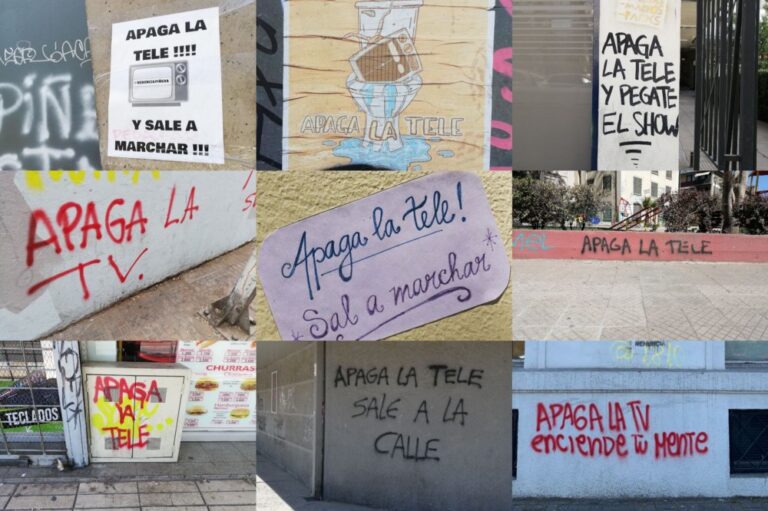 APAGA LA
TELE !!!!
Y SALE A
MARCHAR !!!
PIÑE
APAGA LA TELE
APAGA
LA TELE
Y PEGATE
EL SHOW
APAGA LA
TV.
Apaga la tele!
Sal a marchar
APAGA LA TELE
TECLADOS
APAGA
YA
TELE
CHURRAS
APAGA LA TELE
SALE A LA
CALLE
APAGA LA TV
enciende tu MENTE